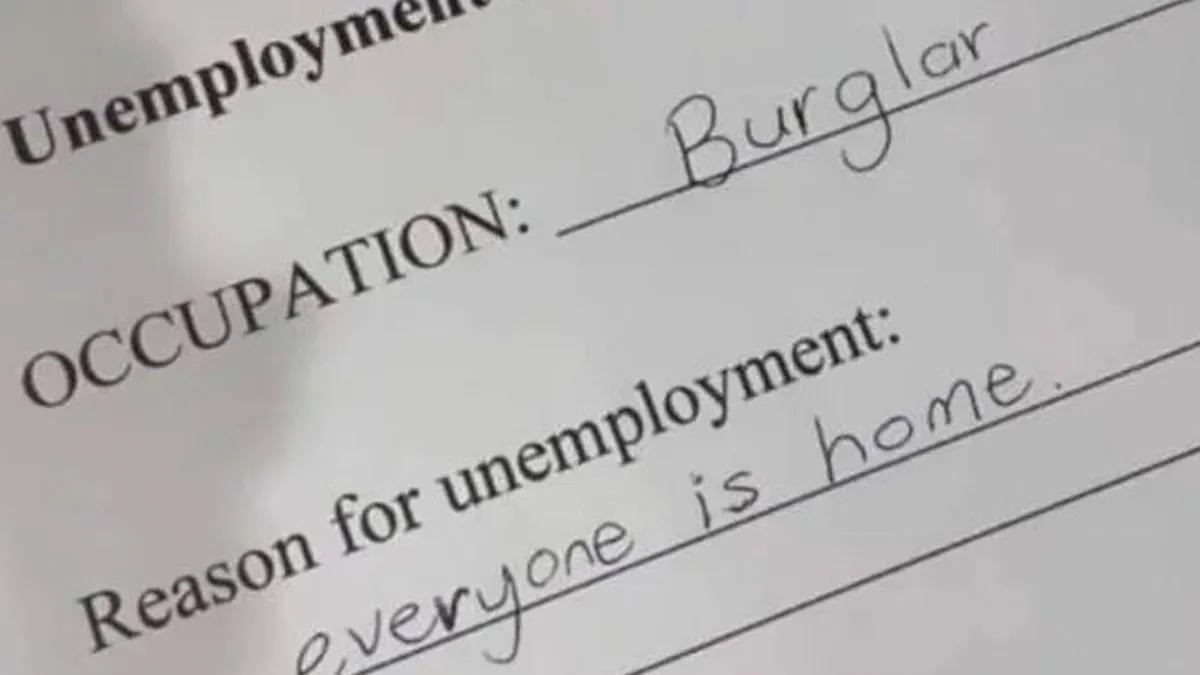 Unemployment
OCCUPATION: Burglar
Reason for unemployment:
everyone is home.